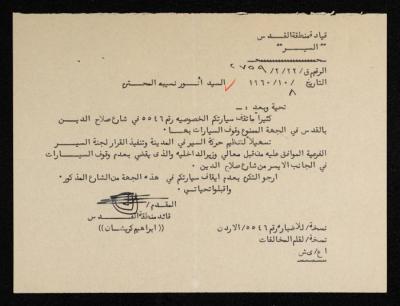 قيادة منطقة القدس
" السير "
الرقم ق/ ٢/٢٢/ ٢٧٥٩
التاريخ ٨ /١٠/ ١٩٦٠
السيد أنور نسيبه المحترم
تحية وبعد :ـ
كثيرا ماتقف سيارتكم الخصوصيه رقم ٥٥٤٦ في شارع صلاح الدين
بالقدس في الجهة الممنوع وقوف السيارات بها .
تسهيلا لتنظيم حركة السير في المدينة وتنفيذا لقرار لجنة السير
الفرعية الموافق عليه من قبل معالي وزير الداخليه والذي يقضي بعدم وقوف السيارات
في الجانب الايسر من شارع صلاح الدين .
ارجو التكرم بعدم ايقاف سيارتكم في هذه الجهة من الشارع المذكور .
واقبلوا تحياتي .
المقدم /
قائد منطقة القدس
(( ابراهيم كريشان ))
نسخة / للاضبارة رقم ٥٥٤٦/ الاردن
نسخة / لقلم المخالفات
اع / ي ش